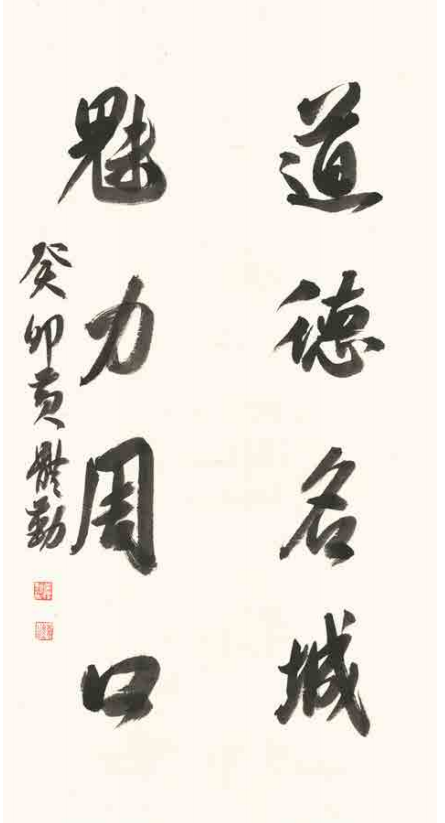 道德名城
魅力周口
癸卯黄体勤